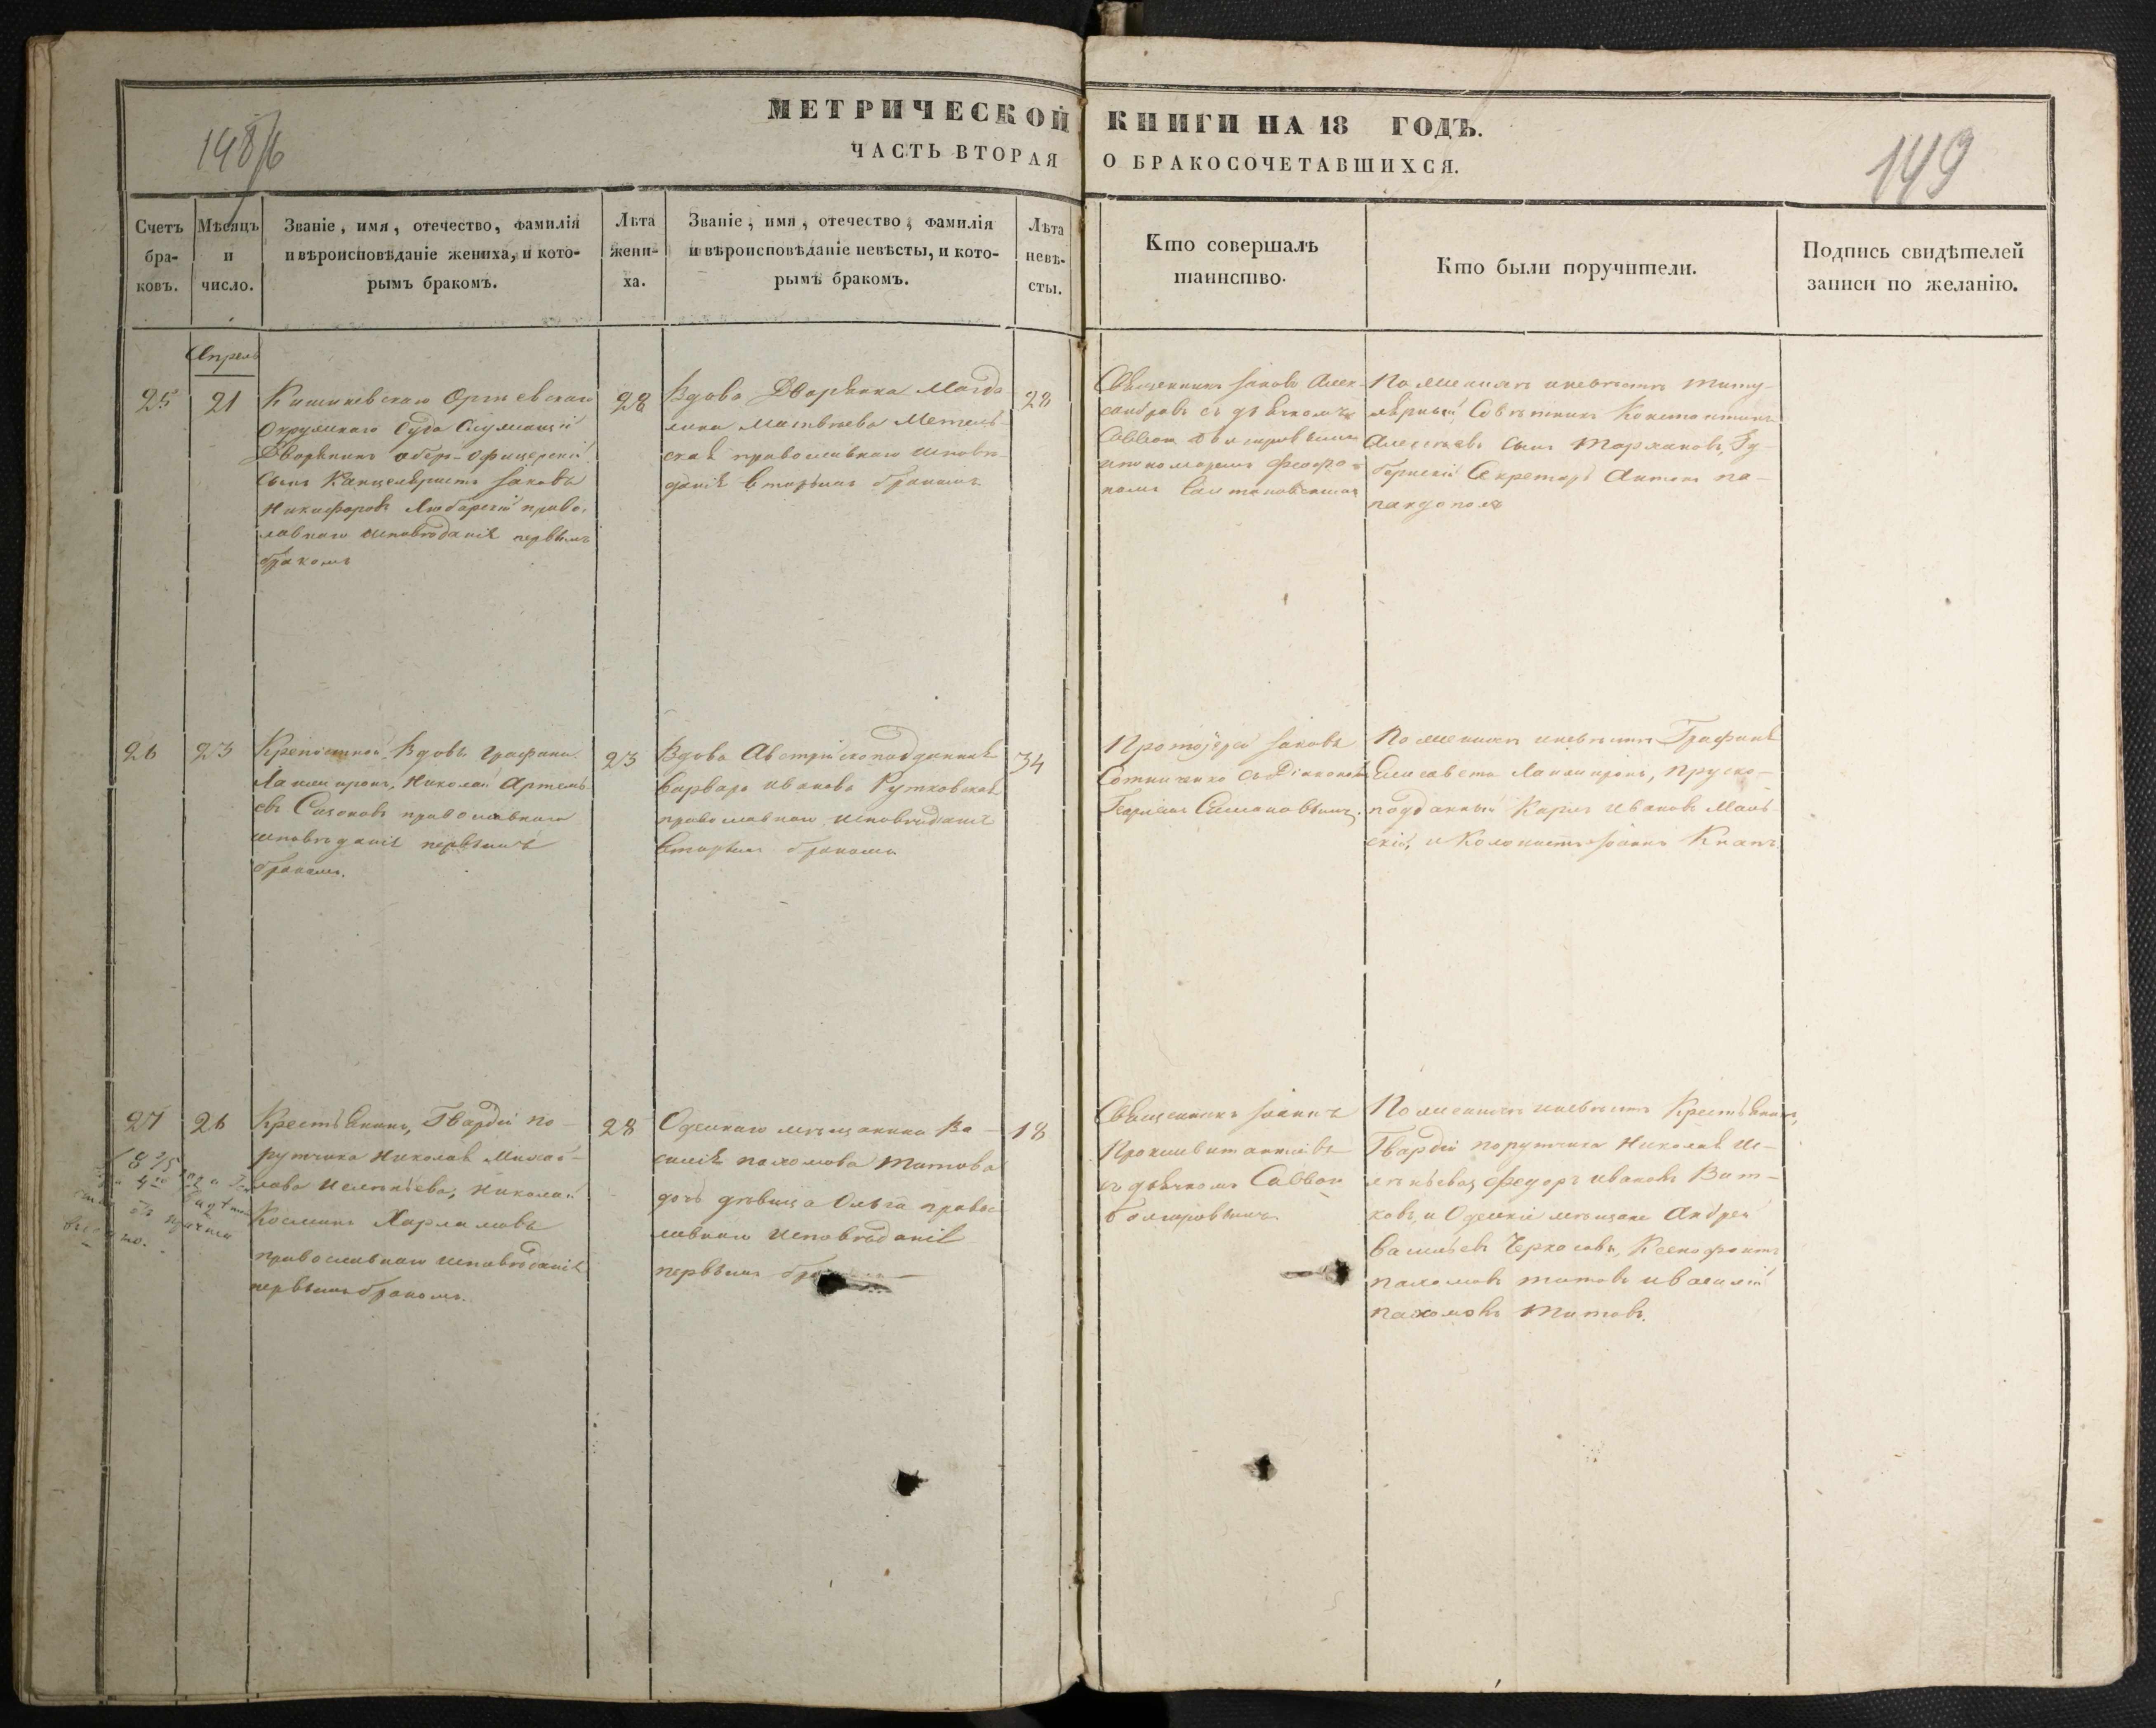 МЕТРИЧЕСКОЙ КНИГИ НА 18 ГОДЪ.
ЧАСТЬ ВТОРАЯ О БРАКОСОЧЕТАВШИХСЯ.
149
Счетъ бра-ковъ.
Мѣсяцъ и число.
Званіе, имя, отечество, фамилія
и вѣроисповѣданіе жениха, и кото-
рымъ бракомъ.
Лѣта жени-ха.
Званіе, имя, отечество, фамилія
и вѣроисповѣданіе невѣсты, и кото-
рымъ бракомъ.
Лѣта невѣ-сты.
Кто совершалъ
таинство.
Кто были поручители.
Подпись свидѣтелей
записи по желанію.
Апрель
25
21
Кишиневскаго Оргѣевскаго
Окружнаго Суда Служащій
Дворянинъ оберъ-офицерскій
сынъ Канцеляристъ Іаковъ
Никифоровъ Любарскій право-
славнаго исповѣданія первымъ
бракомъ
28
Вдова Дворянка Магда
лина Матвѣева
православнаго исповѣ-
данія вторымъ бракомъ
28
Священникъ Іаковъ Алек-
сандровъ съ дьячкомъ
Саввою
и пономаремъ
По женихѣ и невѣстѣ титу-
лярный Совѣтникъ Константинъ
Алексѣевъ сынъ Тарханов, Гу-
бернскій Секретарь Антонъ Па-
пандополо
26
23
Крепостной Вдовы Графини
Ланжиронъ, Николай Артемь
евъ Сизоновъ православнаго
исповѣданія первымъ
бракомъ.
23
Вдова Австрійскоподданная
Варвара Иванова Рутковская
православнаго исповѣданія
вторымъ бракомъ
34
Протоіерей Іаковъ
Сотниченко съ Діакономъ
Георгіемъ
По женихѣ и невѣстѣ Графиня
Елисавета Ланжиронъ, Пруско-
подданный Карлъ Ивановъ
и Колонистъ Іоаннъ Кнапъ.
27
26
Крестьянинъ, Гвардіи по-
рутчика Николая Михай-
лова Николай
Косминъ Харламовъ
православнаго исповѣданія
первымъ бракомъ.
28
Одескаго мѣщанина Ва-
силія Пахомова Титова
дочь дѣвица Ольга право
славнаго исповѣданія
первымъ
18
Священникъ Іоаннъ
съ дьячкомъ Саввою
По женихѣ и невѣстѣ Крестьянинъ,
Гвардіи порутчика Николая
Федоръ Ивановъ Вит-
ковъ, и Одескіе мѣщане Андрей
Васильевъ Черкасовъ, Ксенофонтъ
Пахомовъ Титовъ и Василій
Пахомовъ Титовъ.